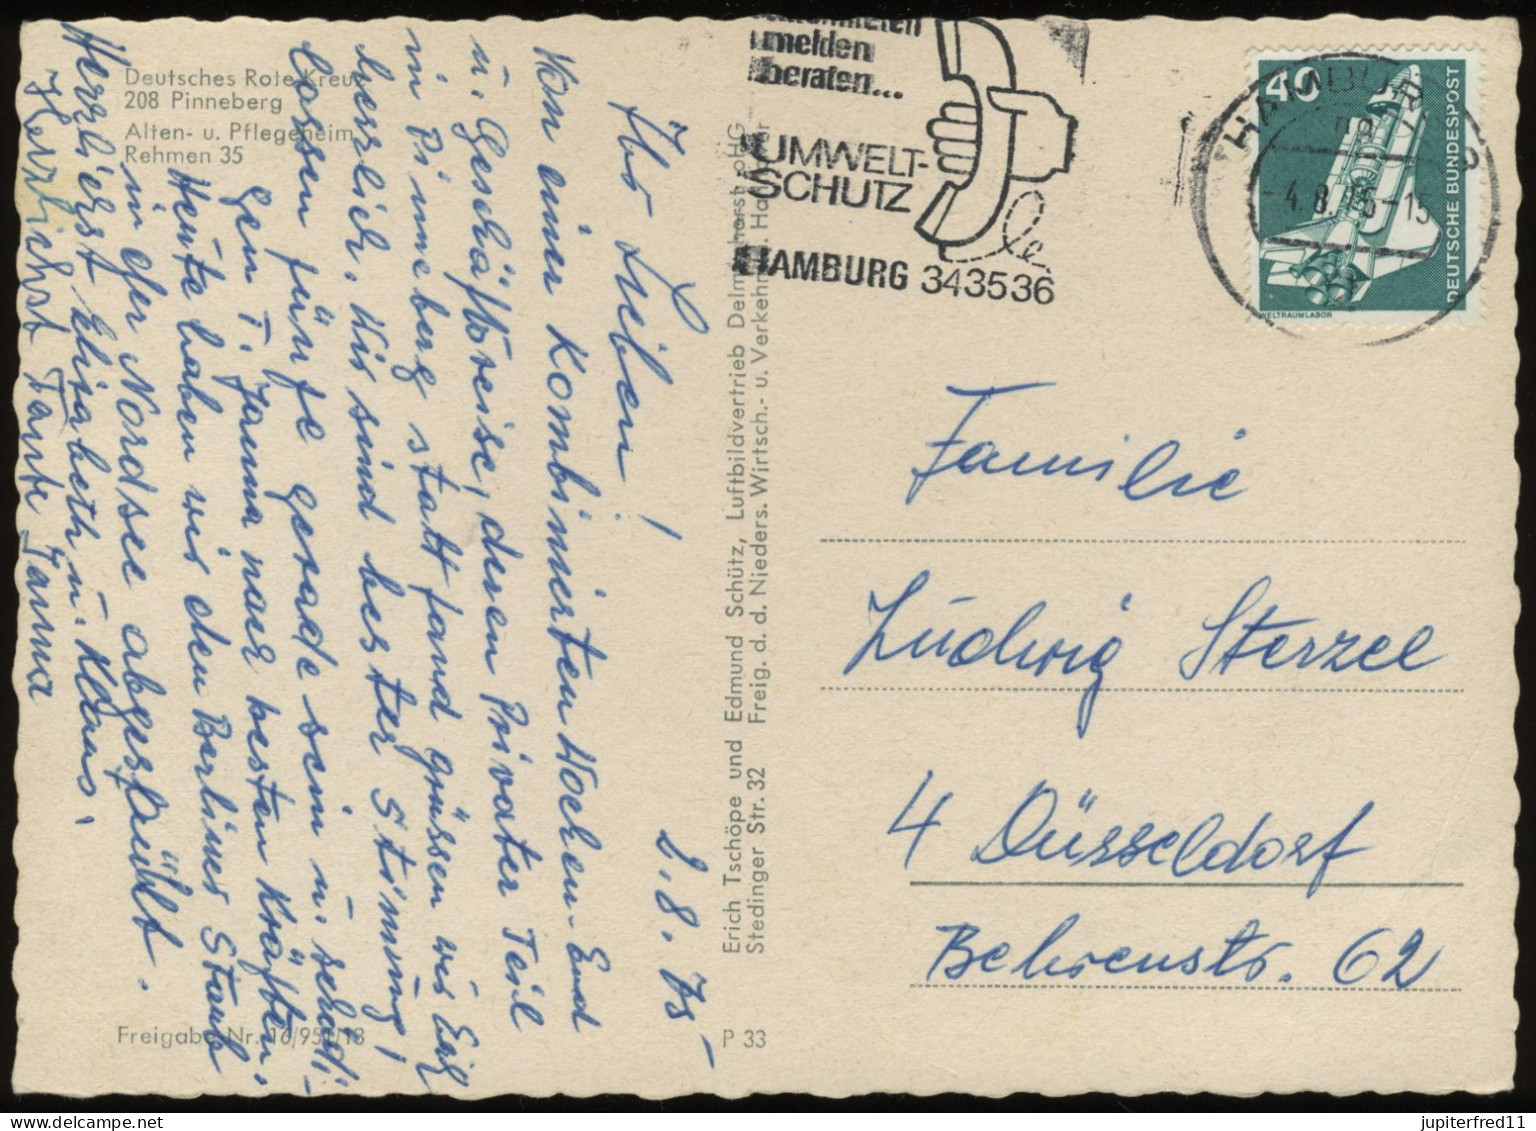 Deutsches Rote Kreuz
208 Pinneberg
Alten- u. Pflegeheim
Rehmen 35
2. 8. 75
Ihr Lieben!
Von einer kombinierten Wochen-End
u. Geschäftsreise, deren Privater Teil
in Pinneberg statt fand grüssen wir Euch
herzlich. Wir sind bester Stimmung!
lassen fünfe gerade sein u. schädi-
gen T. Janna nach besten Kräften.
Heute haben wir den Berliner Staub
in der Nordsee abgespült.
Herzliebst Elisabeth u. Klaus.
Herzlichst Tante Janna
Freigabe Nr. 16/951/18
Erich Tschöpe und Edmund Schütz, Luftbildvertrieb Delmenhorst oHG
Stedinger Str. 32 Freig. d. d. Nieders. Wirtsch.- u. Verkehrsm. Hannover
P 33
melden
beraten...
UMWELT-
SCHUTZ
HAMBURG 343536
HAMBURG
-4.8.75-15
40
DEUTSCHE BUNDESPOST
WELTRAUMLABOR
Familie
Ludwig Sterzel
4 Düsseldorf
Behrenstr. 62
hosted by delcampe.net
jupiterfred11